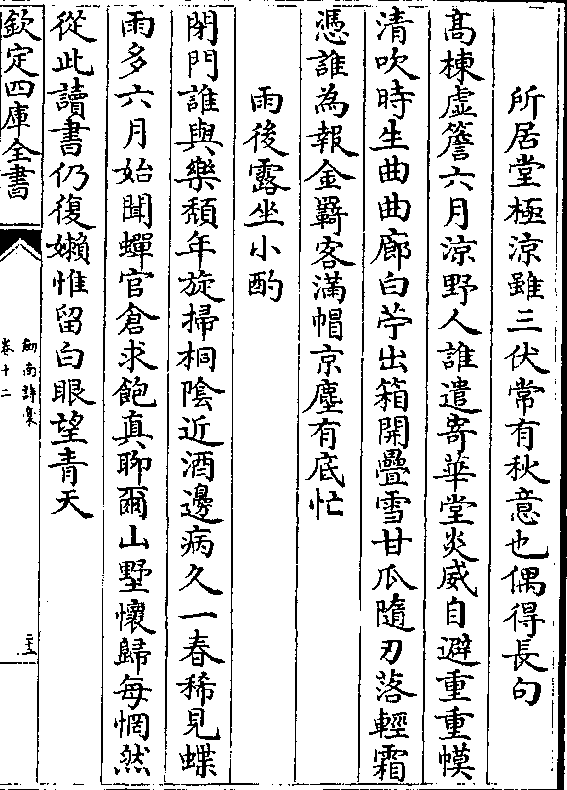 所居堂極涼雖三伏常有秋意也偶得長句
高棟虛簷六月涼野人誰遣寄華堂炎威自避重重幙
清吹時生曲曲廊白苧出箱開疊雪甘瓜隨刃落輕霜
憑誰為報金羇客滿帽京塵有底忙
雨後露坐小酌
閉門誰與樂頽年旋掃桐陰近酒邊病久一春稀見蝶
雨多六月始聞蟬官倉求飽真聊爾山墅懷歸每惘然
從此讀書仍復嬾惟留白眼望青天
欽定四庫全書
劍南詩集
卷十二